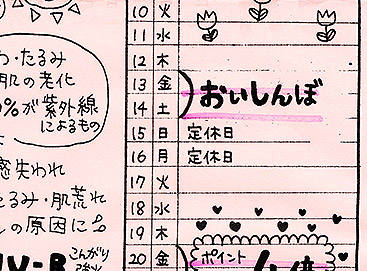 わ・たるみ
肌の老化
%が紫外線
によるもの
感失われ
たるみ・肌荒れ
しの原因に
UV-B こんがり
10 火
11 水
12 木
13 金
14 土
おいしんぼ
15 日 定休日
16 月 定休日
17 火
18 水
19 木
20 金 ポイント